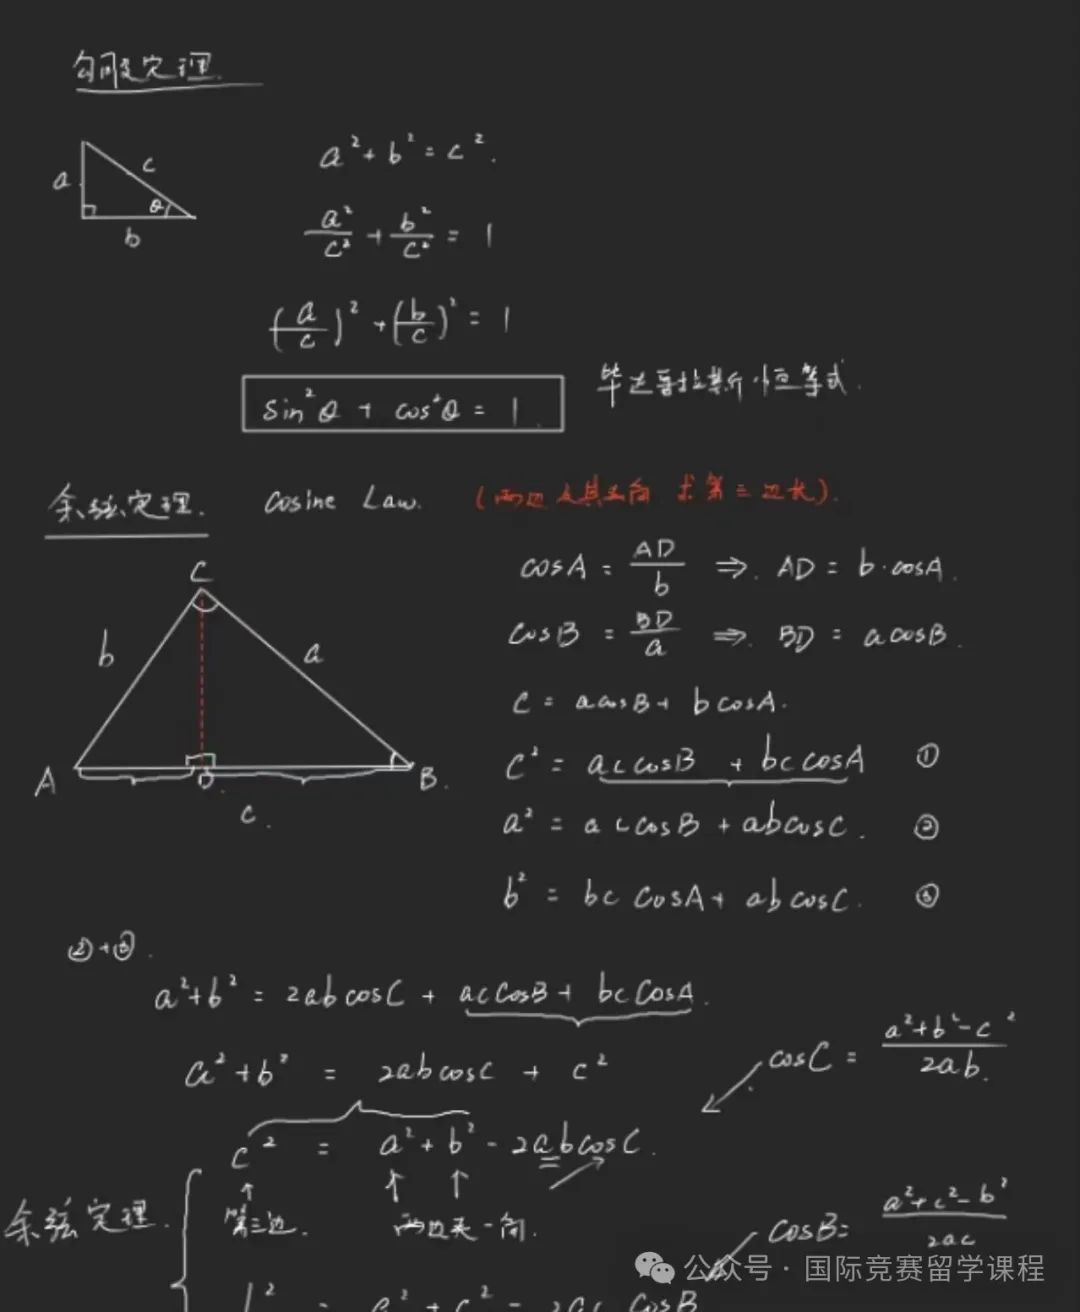 勾股定理.
a
c
θ
b
a² + b² = c².
a²/c² + b²/c² = 1
(a/c)² + (b/c)² = 1
sin²θ + cos²θ = 1.
毕达哥拉斯恒等式.
余弦定理. Cosine Law. (两边及其夹角 求第三边长).
C
b
a
A
D
B.
c.
cosA = AD/b ⇒. AD = b·cosA.
cosB = BD/a ⇒. BD = acosB.
c = acosB + bcosA.
c² = accosB + bccosA ①
a² = accosB + abcosC. ②
b² = bccosA + abcosC. ③
②+③.
a²+b² = 2abcosC + accosB + bccosA.
a²+b² = 2abcosC + c²
cosC = (a²+b²-c²)/2ab.
c² = a²+b² - 2abcosC.
余弦定理.
第三边.
两边夹一角.
cosB = (a²+c²-b²)/2ac
b² = a² + c² - 2ac cosB
公众号·国际竞赛留学课程